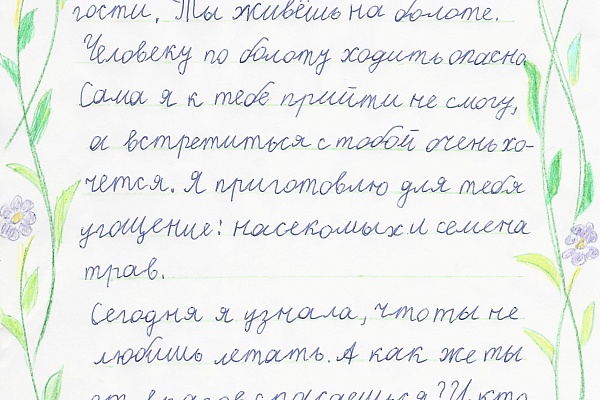 гости. Ты живёшь на болоте.
Человеку по болоту ходить опасно
Сама я к тебе прийти не смогу,
а встретиться с тобой очень хо-
чется. Я приготовлю для тебя
угощение: насекомых и семена
трав.
Сегодня я узнала, что ты не
любишь летать. А как же ты
от врагов спасаешься? И кто